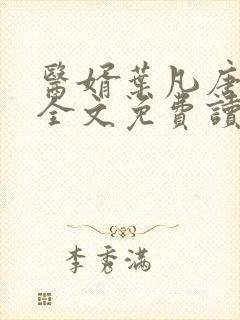 醫婿葉凡唐
全文免費讀
李秀滿